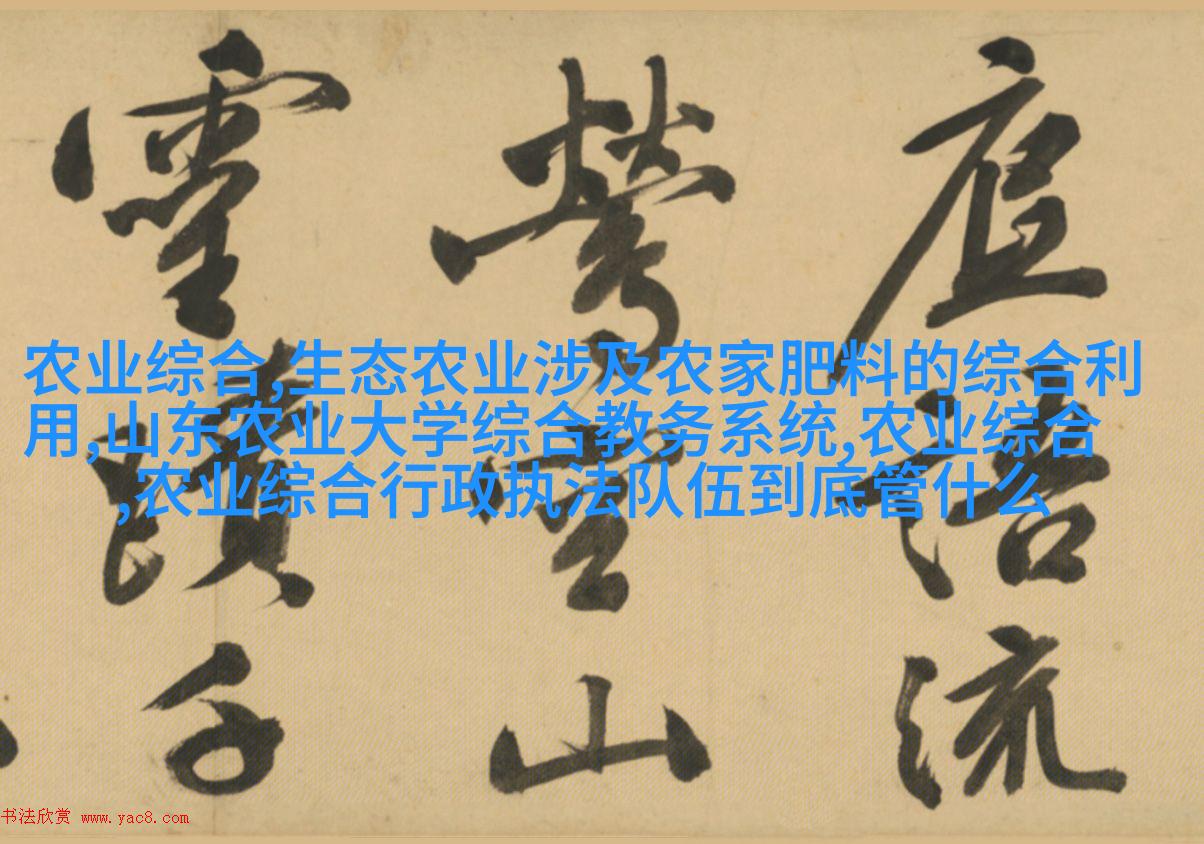 語流
山
靈蹟千
农业综合,生态农业涉及农家肥料的综合利
用,山东农业大学综合教务系统,农业综合
,农业综合行政执法队伍到底管什么
书法欣赏 www.yac8.com